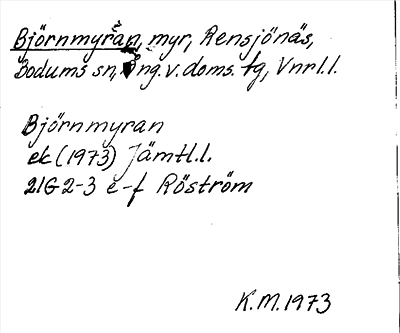 Björnmyran, myr, Rensjönäs,
Bodums sn, Ång.v.doms. tg, Vnrl.l.
Björnmyran
ek (1973) Jämtl.l.
21G 2-3 e-f Röström
K.M. 1973